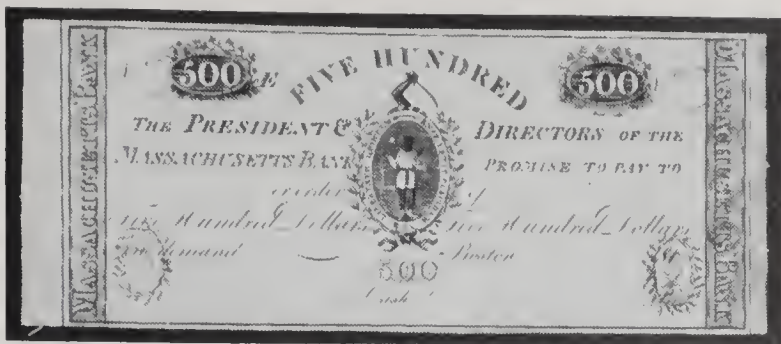 MASSACHUSETTS BANK
500 FIVE HUNDRED 500
THE PRESIDENT & DIRECTORS OF THE
MASSACHUSETTS BANK PROMISE TO PAY TO
or order
Five Hundred Dollars Five Hundred Dollars
on demand Boston
500
Cash
MASSACHUSETTS BANK